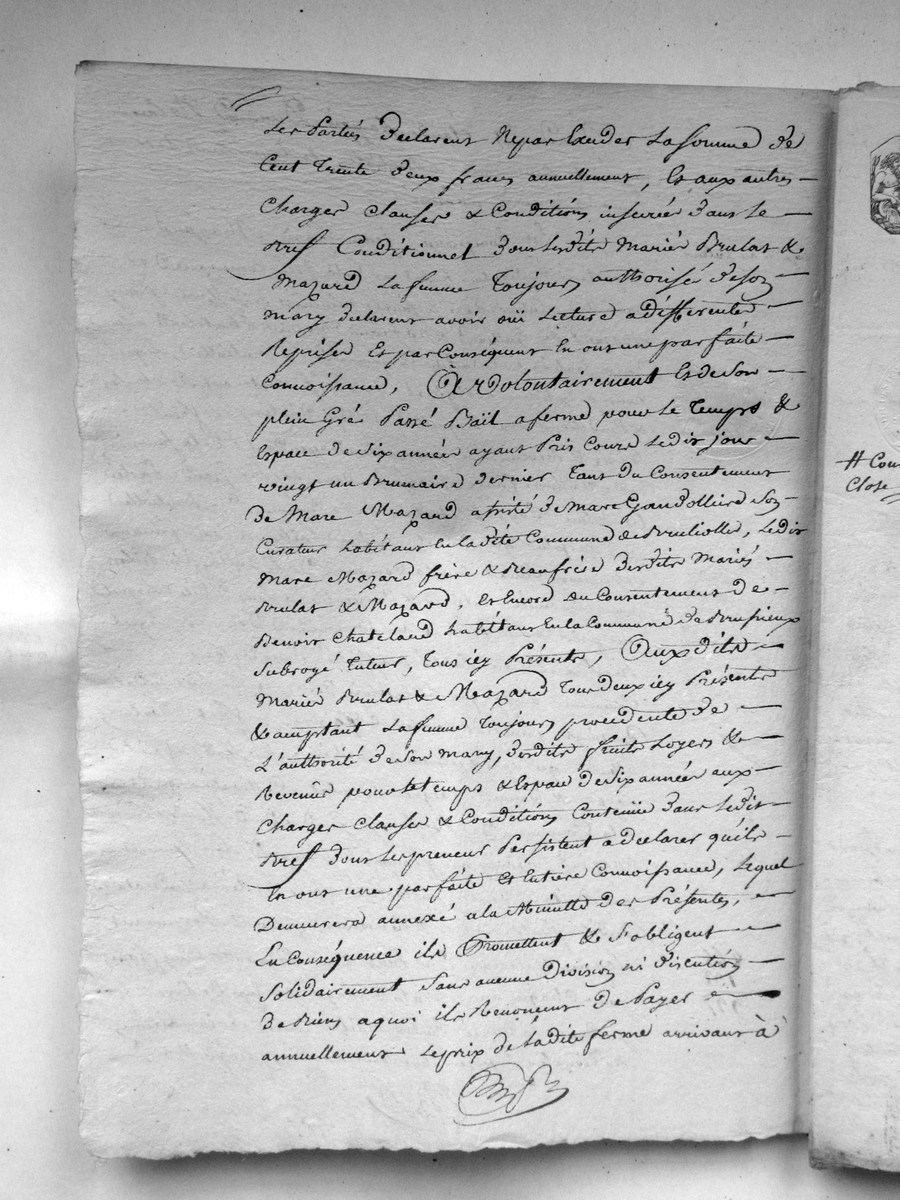 les Parties declarent Nepas Exeder La somme de
Cent Trente deux francs annuellement, Et aux autres
Charges clauses & Conditions inserrée dans le
Bref Conditionnel dont lesdits Mariés Brulas &
Mazard La femme Toujours authorisée de son
Mary declarent avoir oüi Lecture a differentes
Reprises Et par Conséquent En ont une parfaite
Connoissance, A volontairement Et de Son
plein Gré Passé Bail a ferme pour le Temps &
Espace de Six année ayant Pris Cours Ledit jour
vingt un Brumaire dernier Tant du Consentement
de Marc Mazard assisté de Marc Grandolliere Son
Curateur habitant En ladite Commune de Bruliolles, Ledit
Marc Mazard frère & Beaufrère desdits Mariés
Brulas & Mazard, Et Encore du Consentement de
Benoit Chateland habitant En la Commune de Brussieux
Subrogé Tuteur, Tous icy Présents, Auxdits
Mariés Brulas & Mazard Tous deux icy Présents
& acceptant La femme Toujours procedente de
L'authorité de Son Mary, desdits fruits Loyers &
Revenus pour le temps & Espace de Six année aux
Charges clauses & Conditions Contenüe dans Ledit
Bref dont Les preneurs Persistent a declarer qu'ils
En ont une parfaite Et Entière Connoissance, Lequel
Demeurera annexé a la Minutte des Présentes,
En Conséquence ils Promettent & S'obligent
Solidairement Sans aucune Division ni discution
de Biens a quoi ils Renoncent de Payer
annuellement Le prix de Ladite ferme arrivant à
# Cou
Close